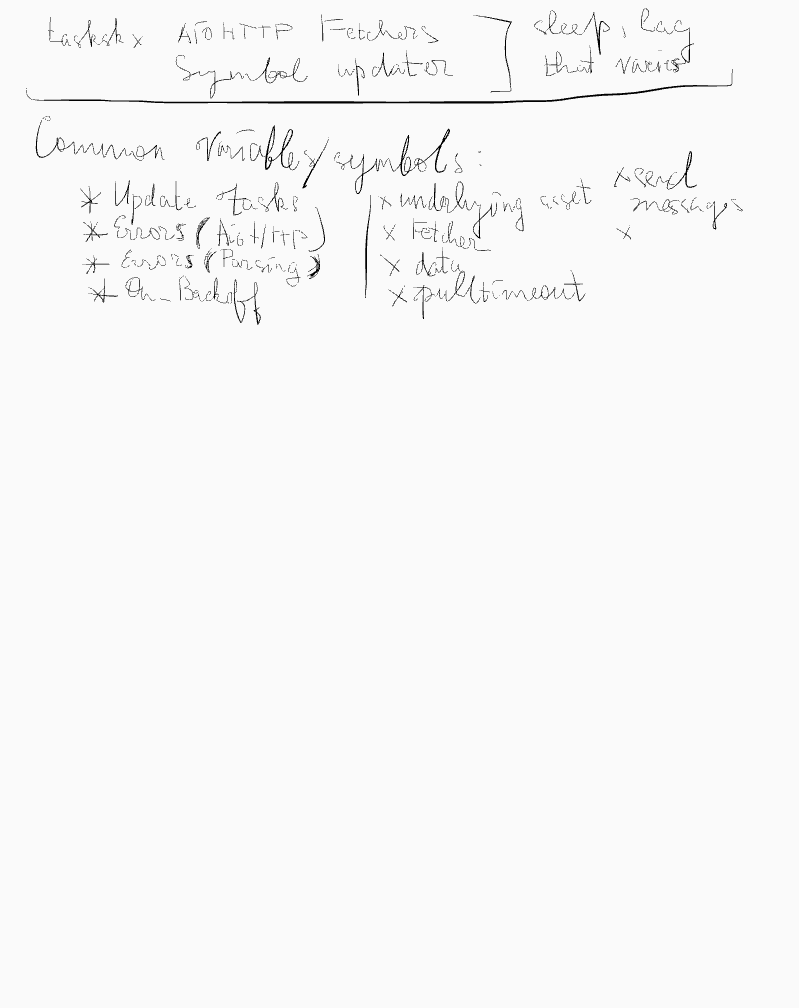 tasksk x AIOHTTP Fetchers sleep, lag
Symbol updater that varies
Common variables/symbols:
* Update tasks
* Errors (AioHTTP)
* Errors (Parsing)
* On_Backoff
x underlying asset
x Fetcher
x data
x pulltimeout
x send
messages
x